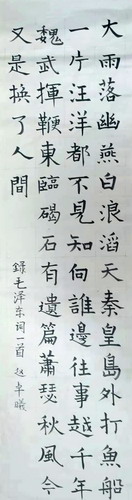 大雨落幽燕白浪滔天秦皇島外打魚船
一片汪洋都不見知向誰邊往事越千年
魏武揮鞭東臨碣石有遺篇蕭瑟秋風今
又是換了人間
錄毛泽东词一首 赵卓曦